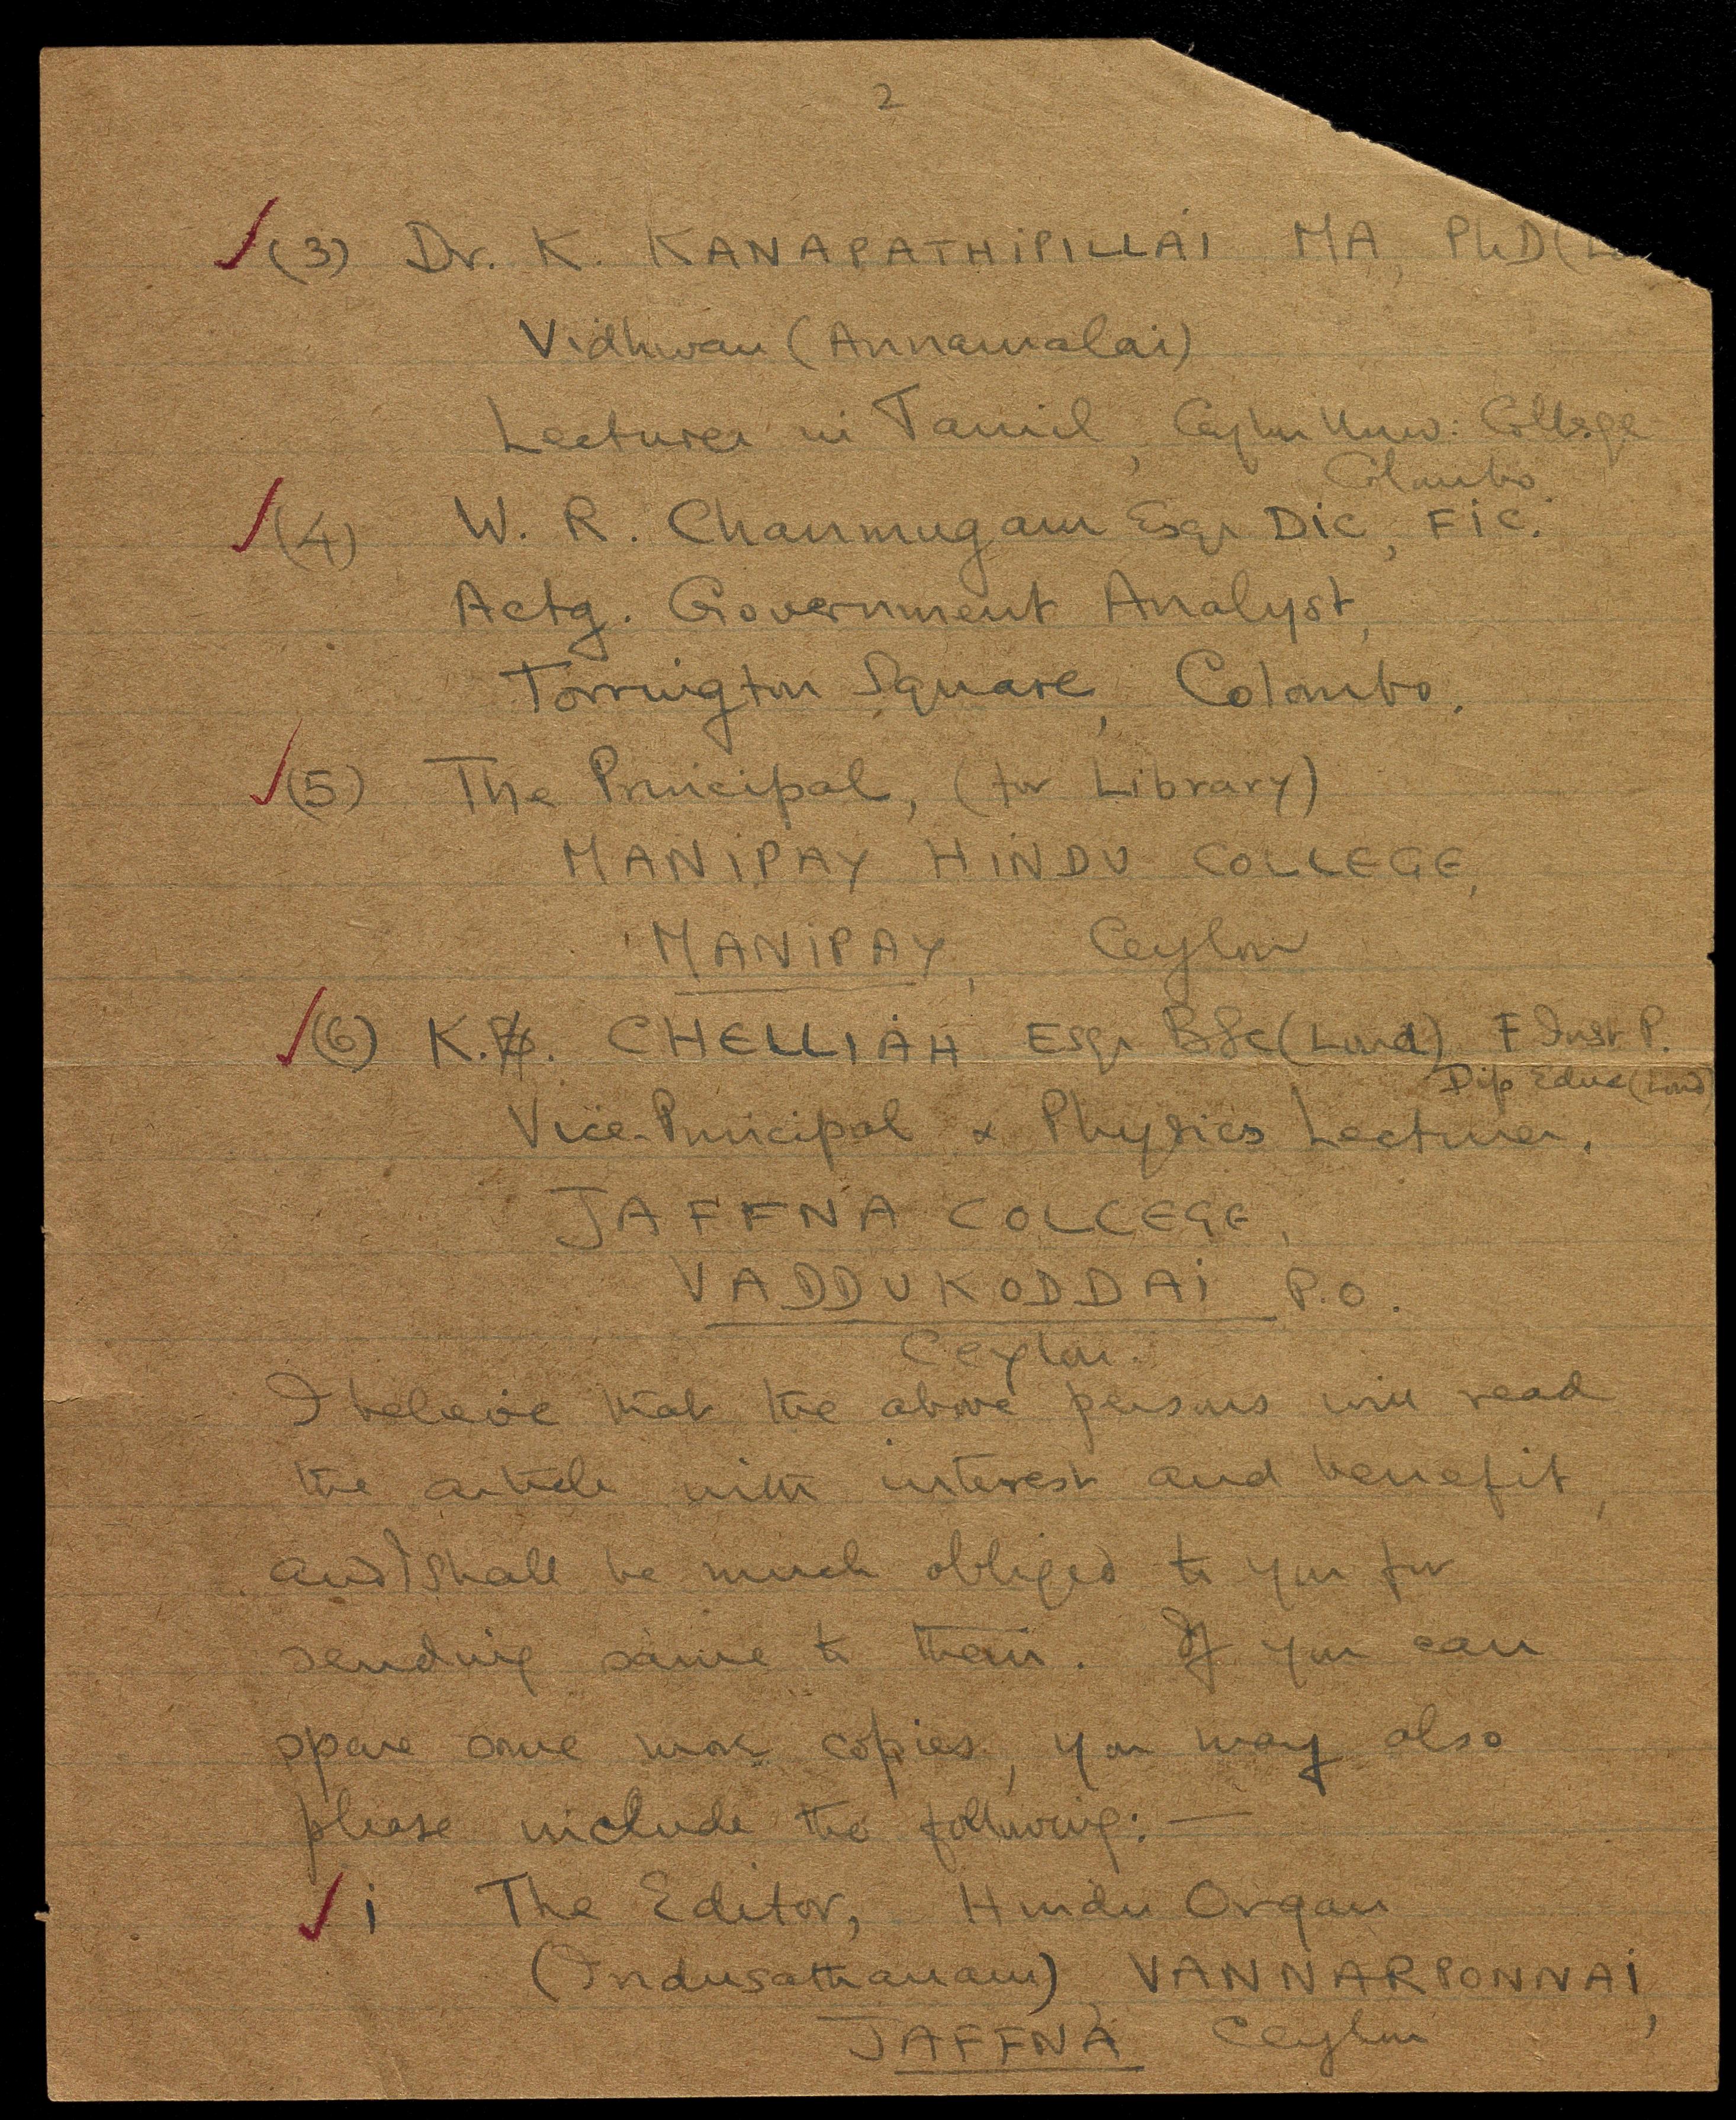 2
(3) Dr. K. KANAPATHIPILLAI MA, PhD (
Vidhwan (Annamalai)
Lecturer in Tamil, Ceylon Univ: College
Colombo.
(4) W. R. Chanmugam Esqr DIC, FIC.
Actg. Government Analyst,
Torrington Square, Colombo.
(5) The Principal, (for Library)
MANIPAY HINDU COLLEGE,
MANIPAY, Ceylon
(6) K. CHELLIAH Esqr BSc (Lond) F Inst P.
Dip Educ (Lond)
Vice-Principal & Physics Lecturer,
JAFFNA COLLEGE,
VADDUKODDAI P.O.
Ceylon.
I beleive that the above persons will read
the article with interest and benefit,
and I shall be much obliged to you for
sending same to them. If you can
spare some more copies, you may also
please include the following: —
i The Editor, Hindu Organ
(Indusathanam), VANNARPONNAI,
JAFFNA Ceylon